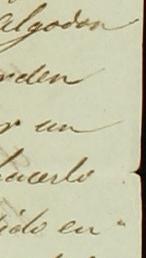 algodon
orden
r un
hacerlo
ido en